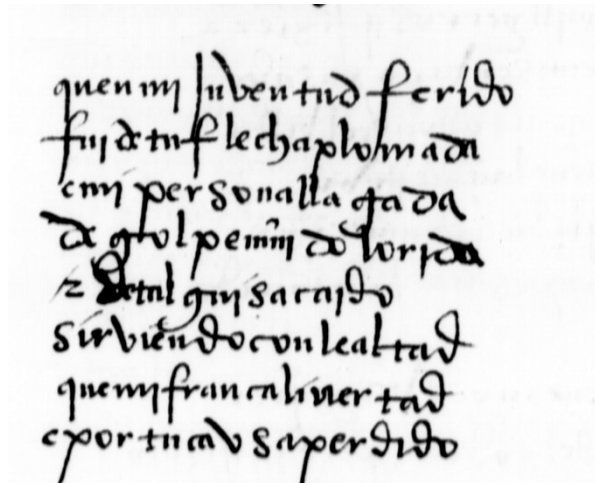 quen mi juventud ferido
fui de tu flecha plomada
e mi persona llagada
de golpe muy dolorida
z de tal guisa caido
sirviendo con lealtad
que mi franca livertad
e por tu causa perdido